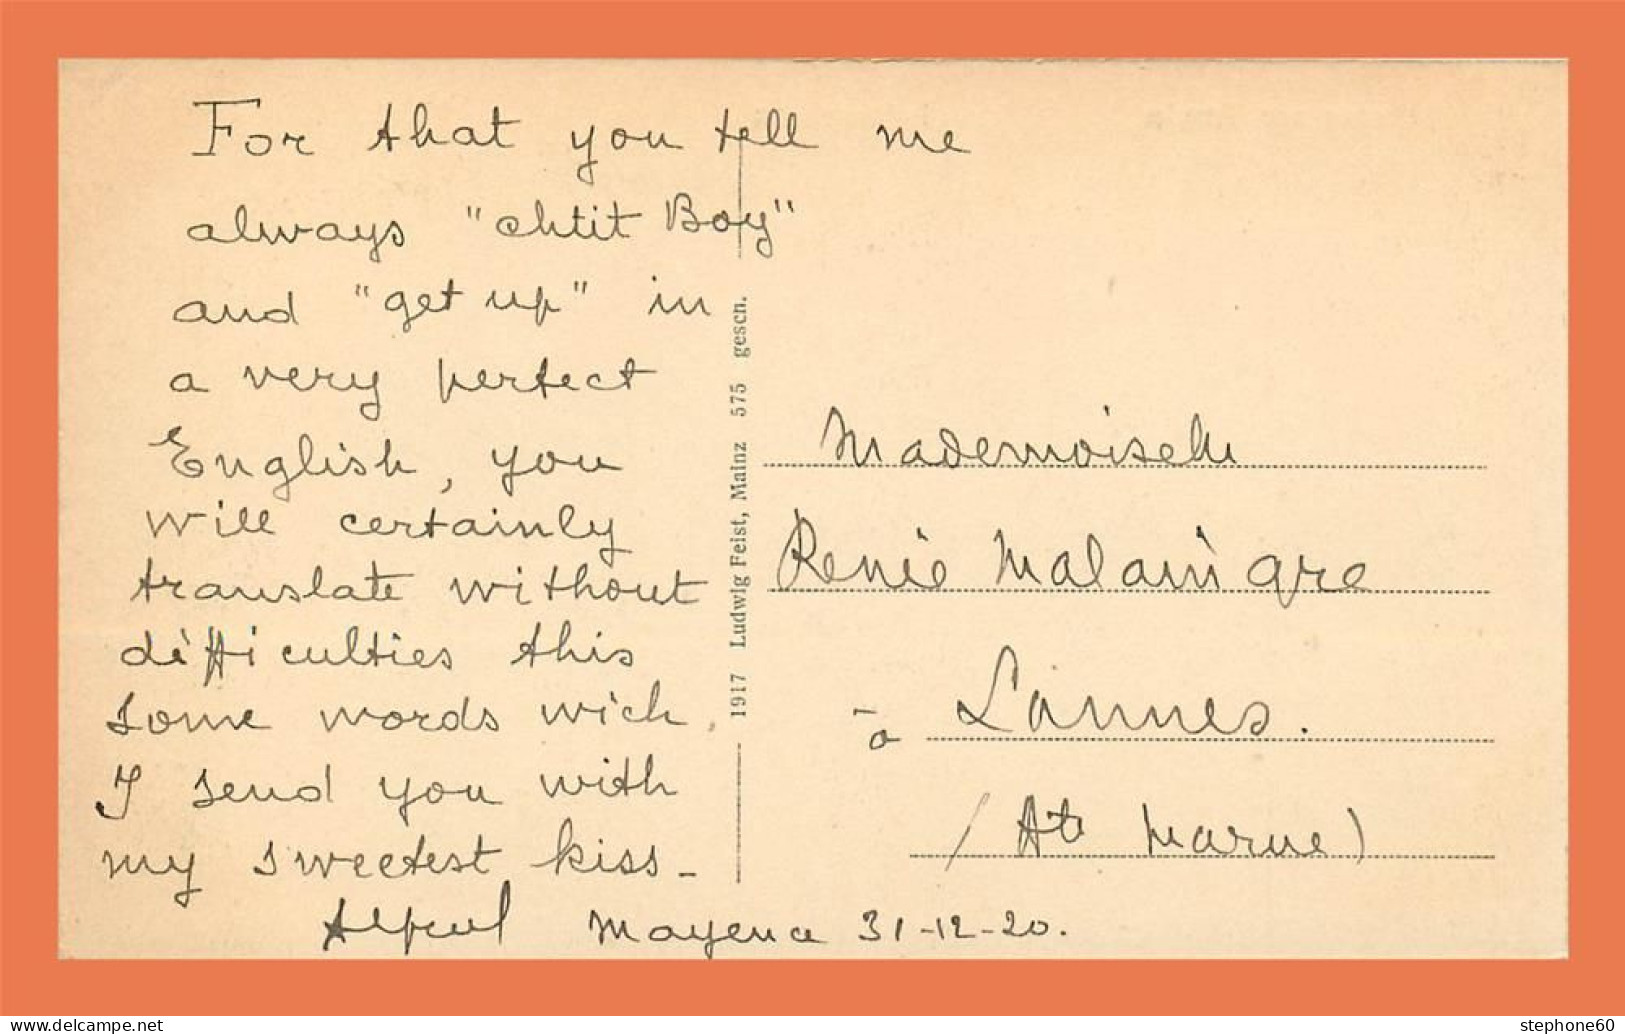 For that you tell me
always "chtit Boy"
and "get up" in
a very perfect
English, you
will certainly
translate without
difficulties this
some words wich
I send you with
my sweetest kiss -
Alfred Mayence 31-12-20.
1917 Ludwig Feist, Mainz 575 gesch.
Mademoiselle
Renée Malaingre
à Lannes.
(Hte Marne)
www.delcampe.net
stephone60